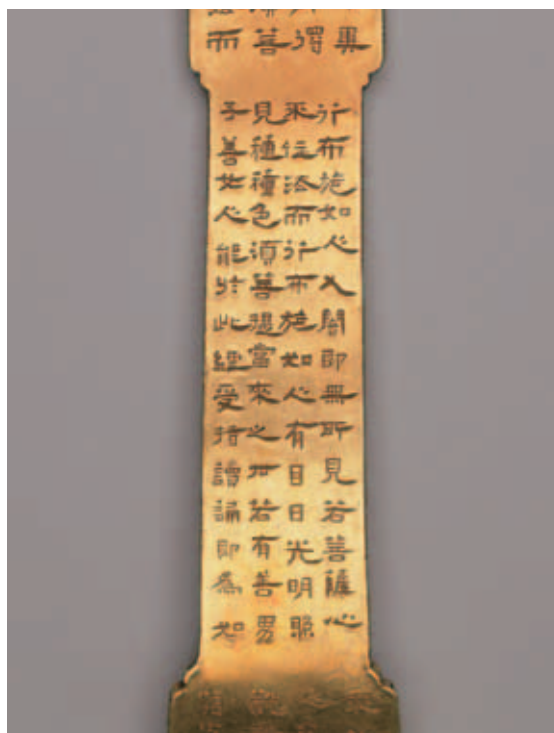 異
得
菩
而
行布施如人入闇即無所見若菩薩心
不住法而行布施如人有目日光明照
見種種色須菩提當來之世若有善男
子善女人能於此經受持讀誦即為如